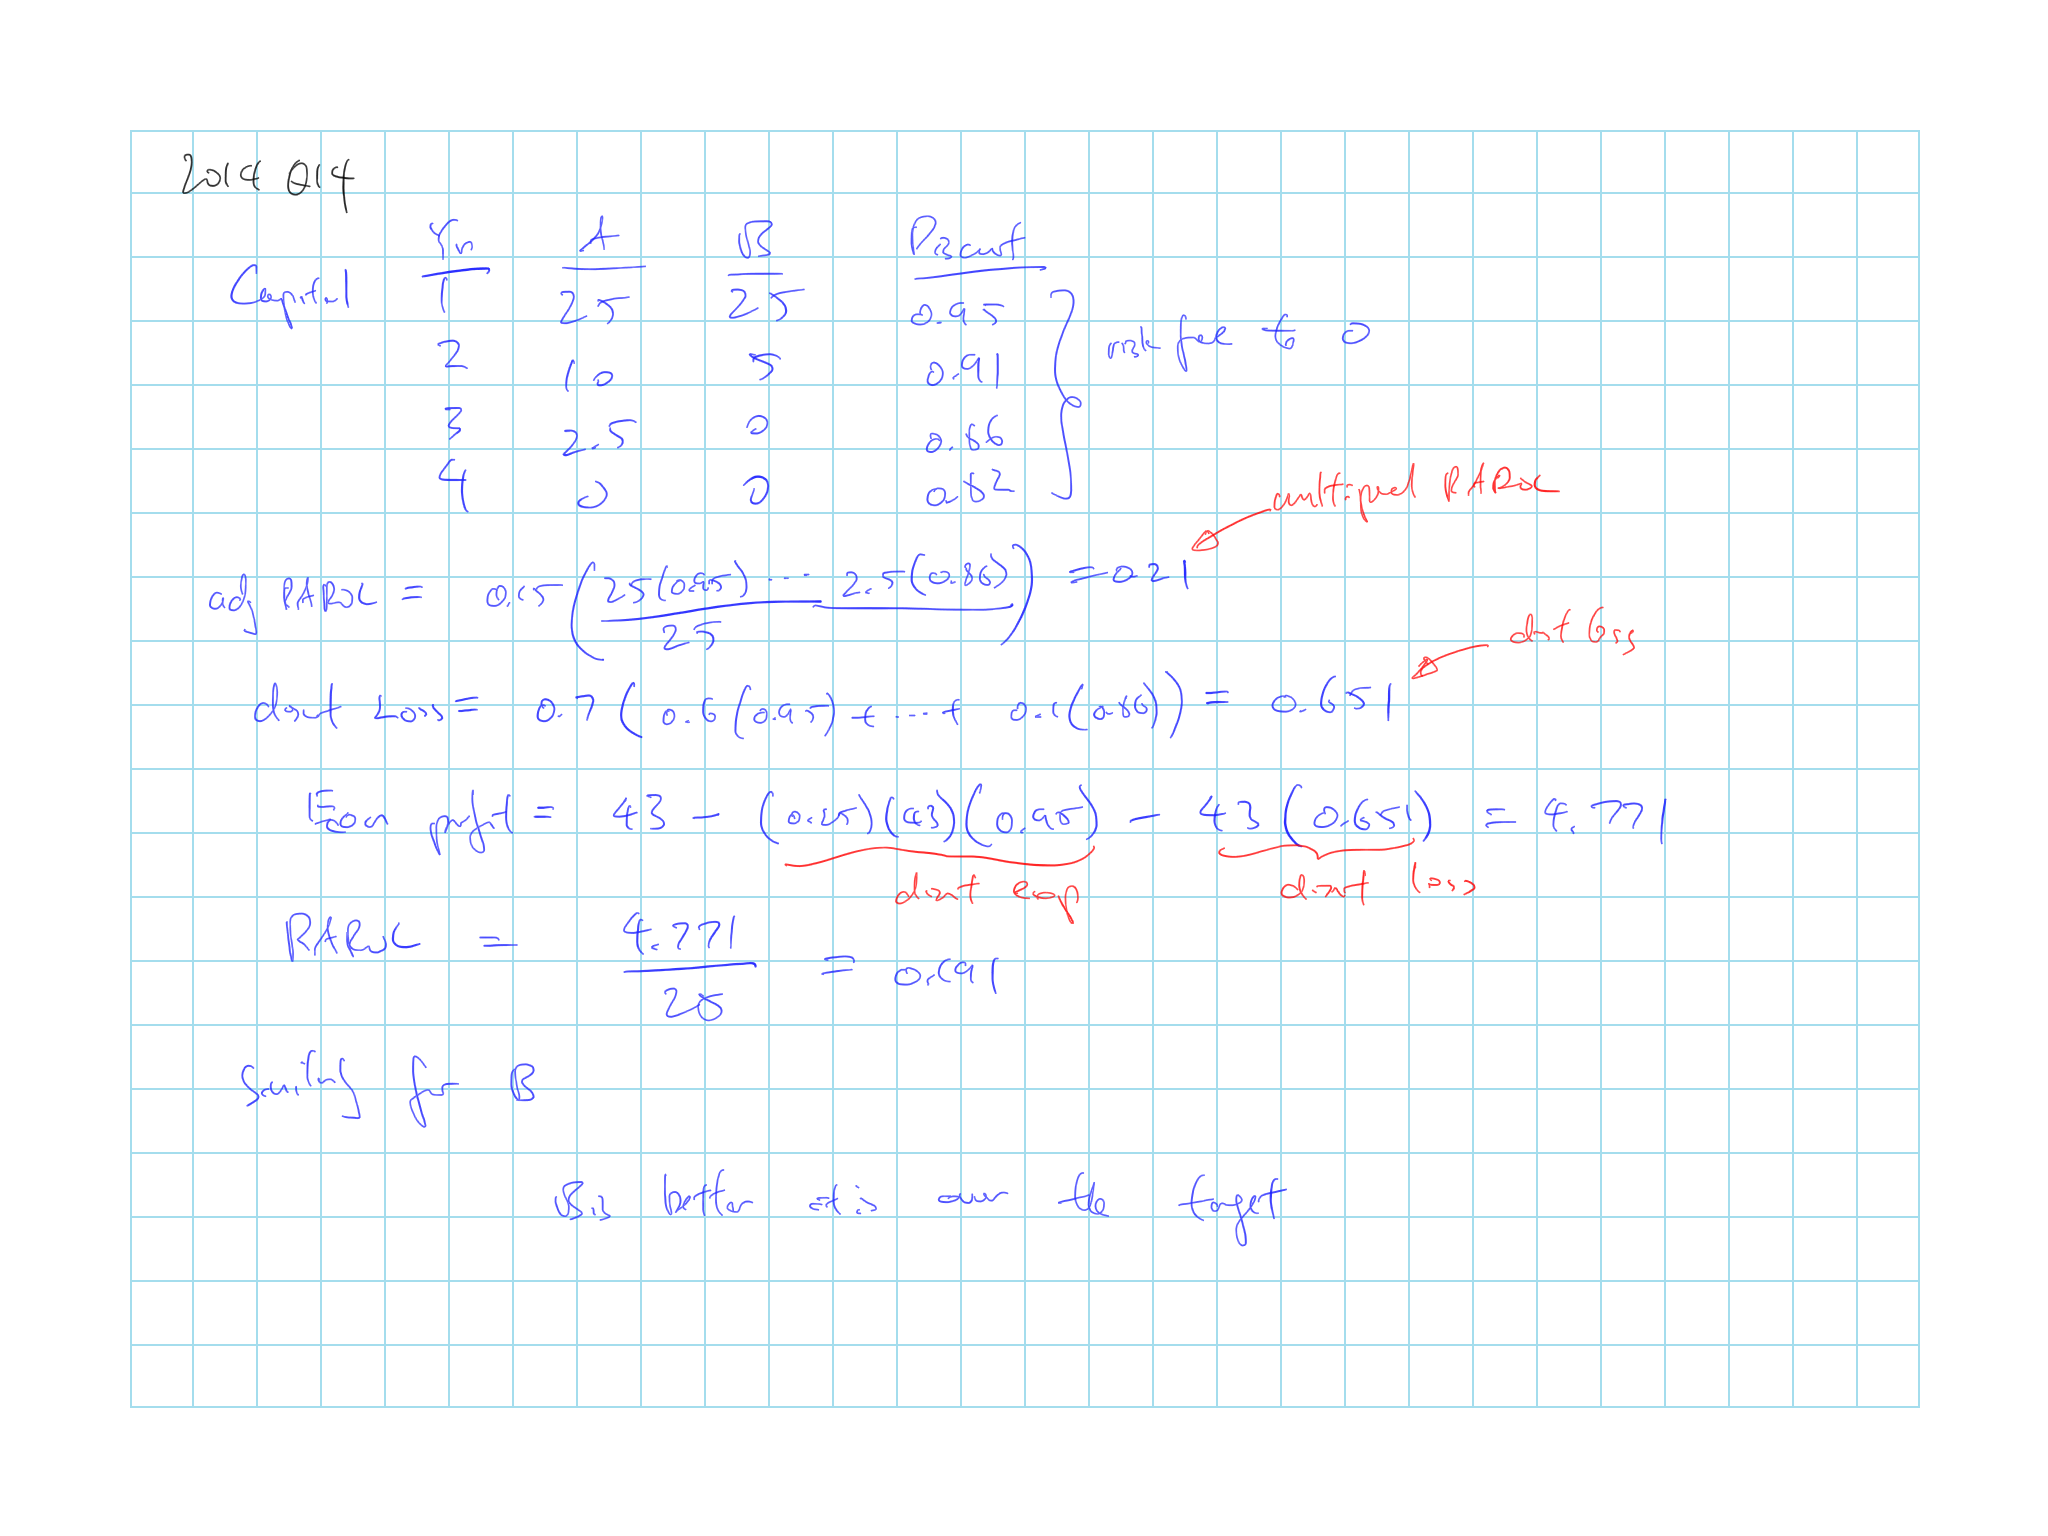 2014 Q14
Yr A B Discount
Capital 1 25 25 0.95
2 10 5 0.91 risk free to 0
3 2.5 0 0.86
4 0 0 0.82
multiperiod RAROC
adj RAROC = 0.15 ( 25(0.95) ... 2.5(0.86) / 25 ) = 0.21
dsnt loss
dsnt Loss = 0.7 ( 0.6(0.95) + ... + 0.1(0.86) ) = 0.651
Econ profit = 43 - (0.25)(43)(0.95) - 43(0.651) = 4.771
dsnt exp dsnt loss
RAROC = 4.771 / 25 = 0.191
Similarly for B
B is better it is over the target